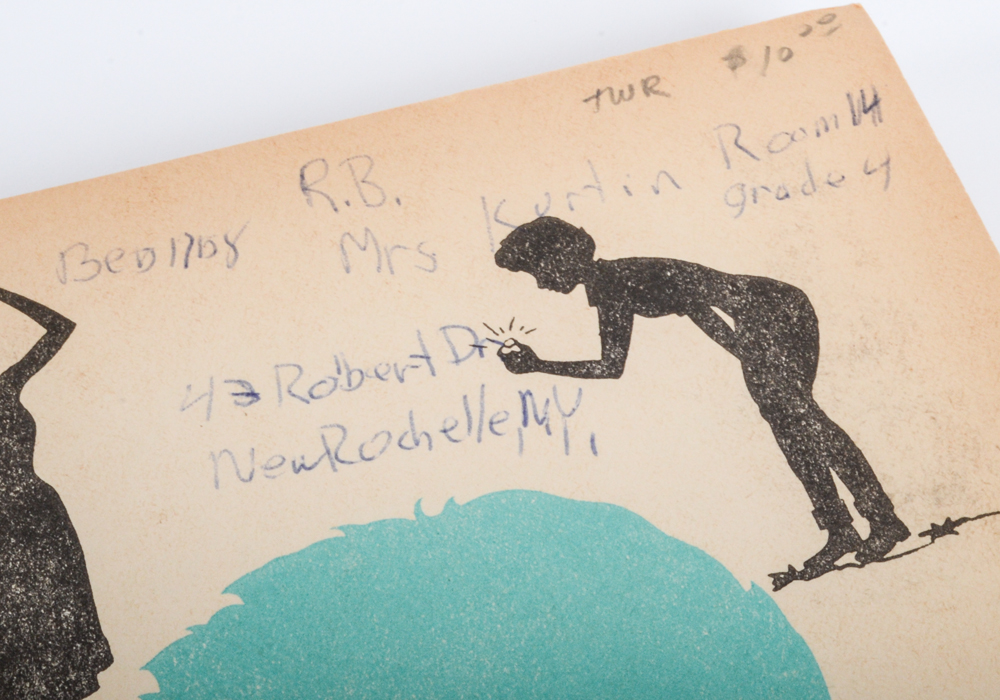 TWR $10.00
R.B.
Room 14
Mrs Kurtin grade 4
43 Robert Dr
New Rochelle, N.Y.